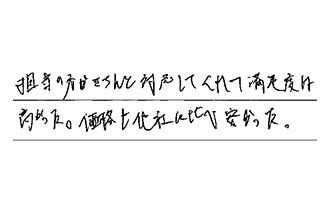 担当の方がきちんと対応してくれて満足度は
高かった。価格も他社に比べ安かった。